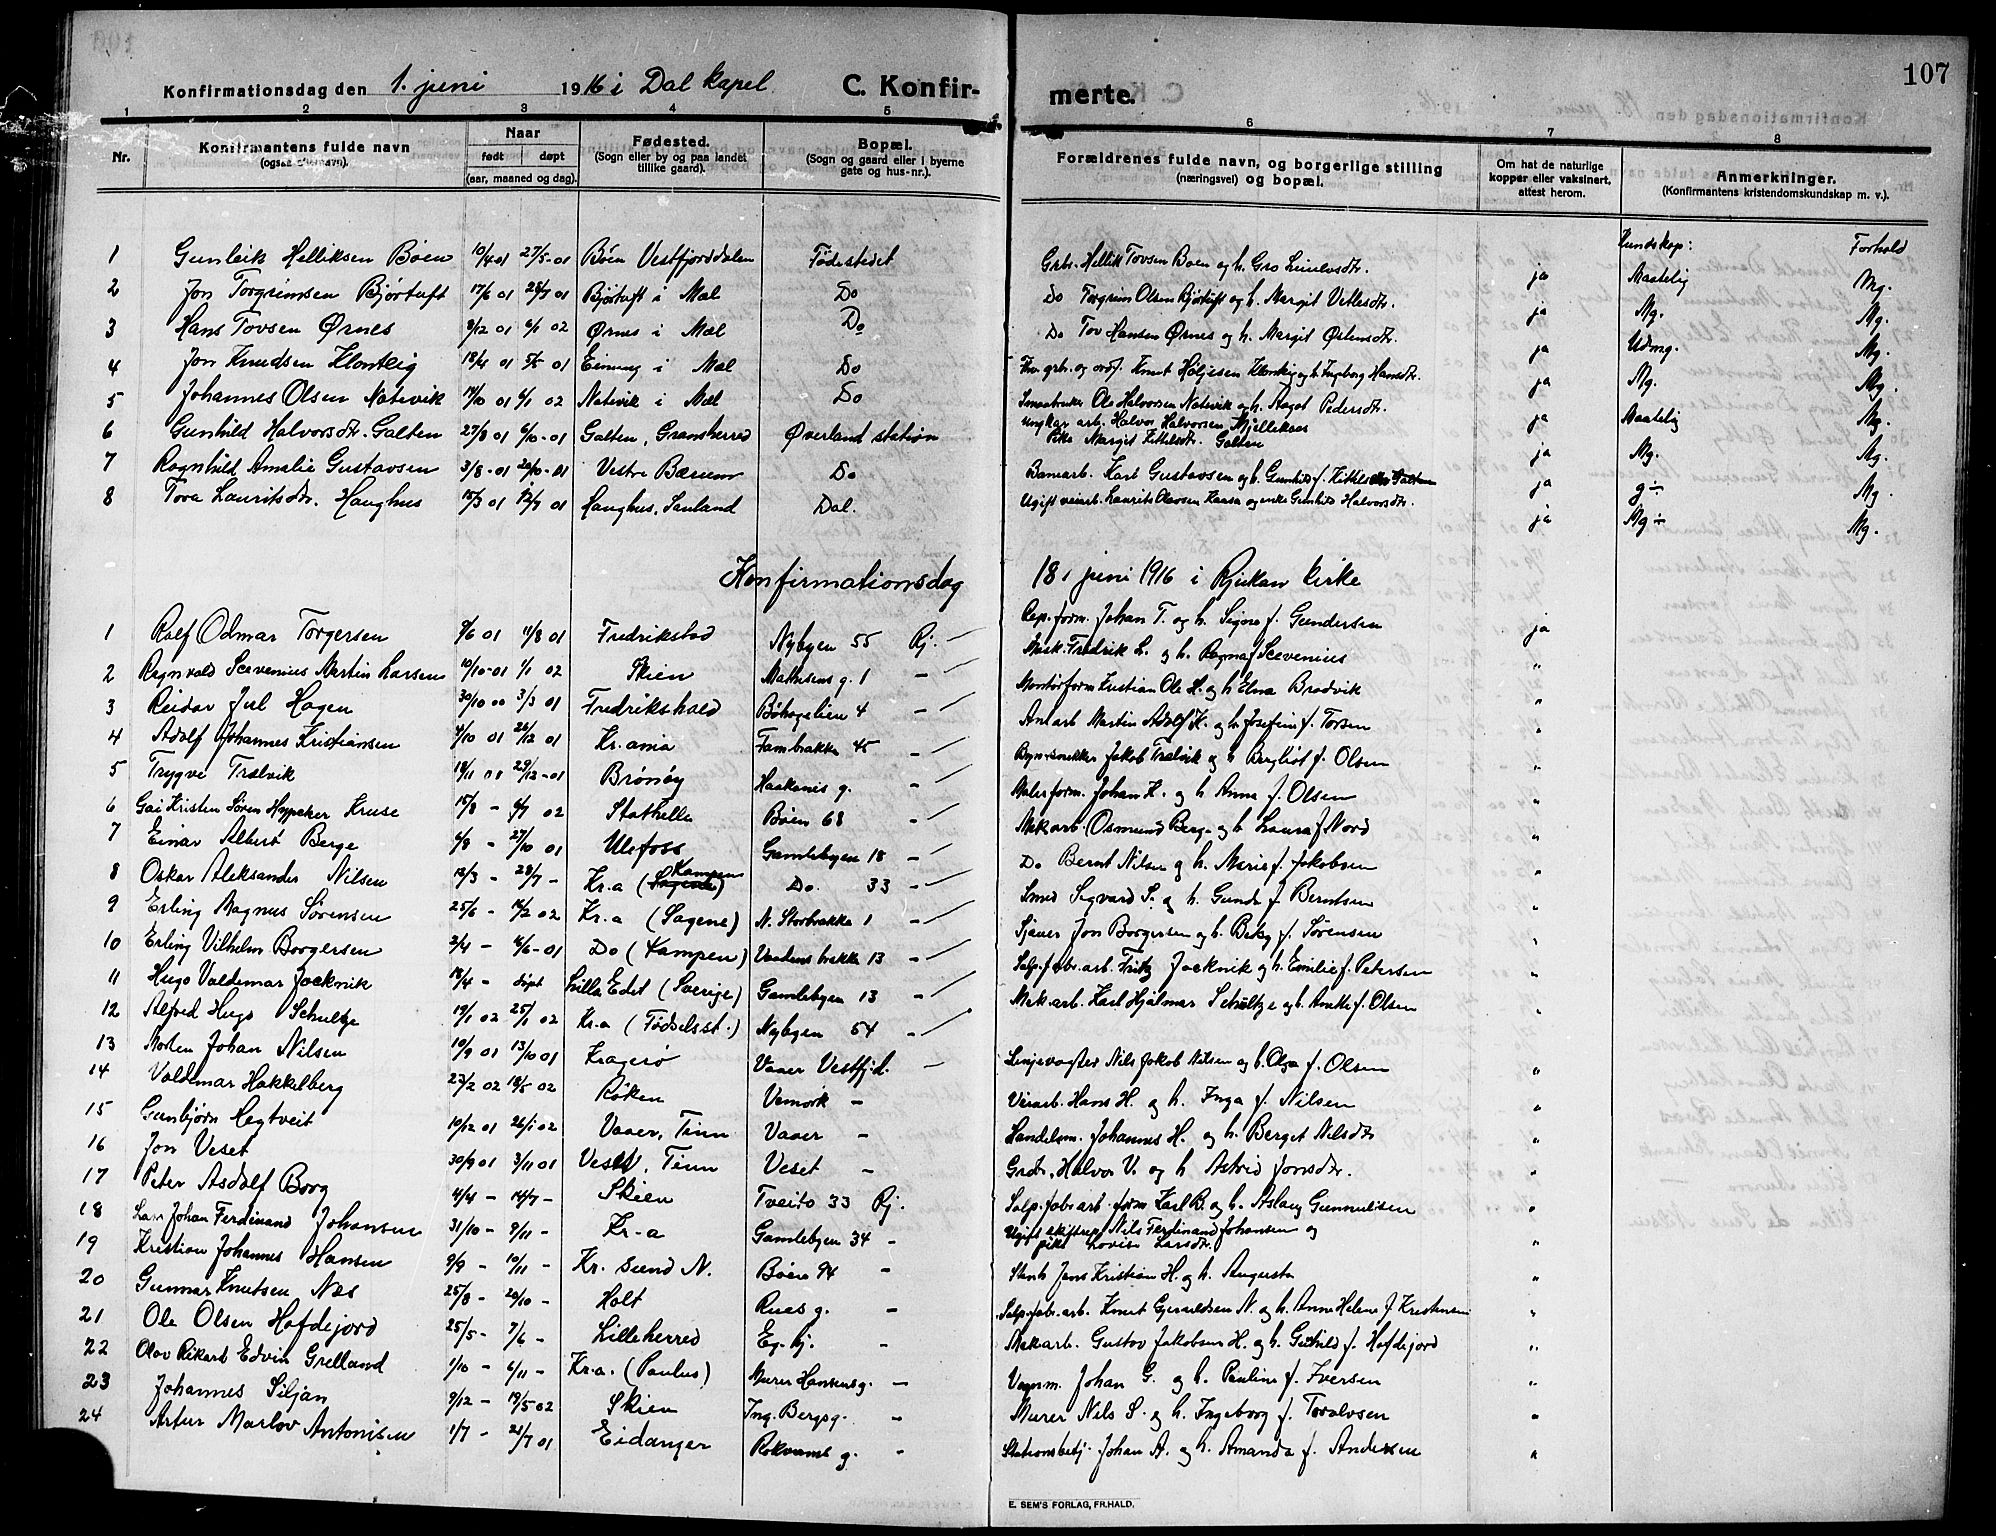 107
Konfirmationsdag den 1. juni 1916 i Dal kapel C. Konfirmerte.
1 2 3 4 5 6 7 8
Nr. Konfirmantens fulde navn (ogsaa efternavn). Naar født døpt (aar, maaned og dag). Fødested. (Sogn eller by og paa landet tillike gaard). Bopæl. (Sogn og gaard eller i byerne gate og hus-nr.). Forældrenes fulde navn, og borgerlige stilling (næringsvei) og bopæl. Om hat de naturlige kopper eller vaksinert, attest herom. Anmerkninger. (Konfirmantens kristendomskundskap m. v.).
Kundskap: Forhold
1 Gunleik Helliksen Bøen 10/4 01 27/5-01 Bøen Vestfjorddalen Fødestedet Grbr. Hellik Tovsen Bøen og h. Gro ja Maatelig Mg.
2 Jon Torgrimsen Bjørtuft 17/6 01 28/7 01 Bjørtuft i Mæl Do Do Torgrim Olsen Bjørtuft og h. Margit Vetlesdtr. ja Mg. Mg.
3 Hans Tovsen Ørnes 8/12 01 6/1 02 Ørnes i Mæl Do Do Tov Hansen Ørnes og h. Margit Østensdtr. ja Udmg. Mg.
4 Jon Knudsen Klonteig 18/4 01 5/5 01 Einung i Mæl Do Knut Høljesen Klonteig og h. Ingeborg Hansdtr. ja Mg. Mg.
5 Johannes Olsen Nativik 14/10 01 6/1 02 Nativik i Mæl Do Smaabruker Ole Halvorsen Nativik og h. Aagot Pedersdtr. ja Maatelig Mg.
6 Gunhild Halvorsdtr. Galten 27/8 01 6/10-01 Galten, Gransherred Øverland station Ungkar arb. Halvor Halvorsen Mjellekaas
Pike Margit Kittelsdtr. Galten ja Mg. Mg.
7 Ragnhild Amalie Gustavsen 3/8-01 20/10-01 Vestre Bærum Do Banearb. Karl Gustavsen og h. Gunhild f. Kittelsdtr Galten ja g÷ Mg.
8 Tora Lauritsdtr. Haughus 15/3 01 12/7 01 Haughus, Sauland Dal. Ugift veiarb. Laurits Olavsen Kaasa og enke Gunhild Halvorsdtr. ja Mg÷ Mg.
Konfirmationsdag 18. juni 1916 i Rjukan kirke
1 Rolf Odmar Torgersen 9/6 01 11/8 01 Fredrikstad Nybyen 55 Rj. Rep.form. Johan T. og h. Signe f. Gundersen ja
2 Ragnvald Scevenius Martin Larsen 10/10-01 1/1 02 Skien Mathisens g. 1 - Mask. Fredrik L. og h. Ragna f Scevenius "
3 Reidar Jul Hagen 30/10 00 3/3 01 Fredrikshald Bøhagelien 4 - Montørform Kristian Ole H. og h Elna Brodvik "
4 Adolf Johannes Kristiansen 4/10 01 26/12 01 Kr.ania Fambrakke 45 - Anl arb Martin Adolf K. og h. Josefine f. Torsen "
5 Trygve Trælvik 18/11 01 29/12-01 Brønøy Haakanes g. - Bygn.snekker Jakob Trælvik og h Bergliot f. Olsen "
6 Gai Kristen Søren Kruse 15/8 - 6/7 02 Stathelle Bøen 68 - Malerform. Johan K. og h Anna f. Olsen "
7 Einar Albert Berge 4/8 - 27/10 01 Ulefoss Gamlebyen 18 - Mek arb. Osmund Berge og h Laura f Nord "
8 Oskar Aleksander Nilsen 12/3 - 28/7 - Kr.a (Sagene) Kampen Do. 33 - Do Bernt Nilsen og h. Marie f. Jakobsen "
9 Erling Magnus Sørensen 25/6 - 16/2 02 Kr.a (Sagene) N. Storbrakke 1 - Smed Sigvard S. og h. Gunda f Berntsen "
10 Erling Vilhelm Borgersen 2/4 - 16/6-01 Do (Kampen) Vaadens brakke 13 - Sjauer Jon Borgersen og h. f. Sørensen "
11 Hugo Valdemar Jacknik 14/4 - døpt Lilla Edet (Sverige) Gamlebyen 13 - Salp.fabr.arb. Fritz Jacknik og h. Emilie f. Petersen "
12 Alfred Hugo Schultze 19/1 02 25/1 02 Kr.a (Fødselsst.) Nybyen 54 - Mek arb. Karl Hjalmar Schultze og h. Anette f. Olsen "
13 Morten Johan Nilsen 10/9 01 13/10 01 Kragerø Vaaer Vestfj.d. - Linjevogter Nils Jakob Nilsen og h. Olga f. Olsen "
14 Valdemar Hakkelberg 27/2 02 18/5 02 Røken Vemork - Veiarb. Hans H. og h. Inga f. Nilsen "
15 Gunbjørn Hegtveit 10/12 01 26/1 02 Vaaer, Tinn Vaaer - Handelsm. Johannes H. og h. Berget Nilsdtr "
16 Jon Veset 30/9 01 3/11 01 Veset, Tinn Veset - Grdbr. Halvor V. og h Astrid Jonsdtr. "
17 Peter Asdolf Borg 4/4 - 14/7 - Skien Tveito 33 Rj. Salp.fabr.arb. form Karl B. og h. Aslaug Gunnulfsen "
18 Lars Johan Ferdinand Johansen 31/10 - 9/11 - Kr-a Gamlebyen 34 - Ugift Nils Ferdinand Johansen og
pike Lovise Larsdtr. "
19 Kristian Johannes Hansen 9/9 - 10/11 - Kr. sund N. Bøen 94 - Jens Kristian H. og h. Augusta "
20 Gunnar Knutsen Næs 25/8 - 20/10 - Holt Ruas g. - Salp.fabr.arb. Knut Gjeruldsen N. og h. Anne Helene f Kristensen "
21 Ole Olsen Hofdejord 25/5 - 7/6 - Lilleherred Eg. hj. - Mek arb. Gustov Jakobsen H. og h. Gunhild f. Hofdejord "
22 Olav Rikard Edvin Grelland 1/10 - 6/11 - Kr.a. (Paulus) Murer Hansens g. - Vognm. Johan G. og h. Pauline f. Iversen "
23 Johannes Siljan 9/12 - 19/5 02 Skien Ing. Bergs g. - Murer Nils S. og h. Ingeborg f. Toralvsen "
24 Artur Marlov Antonisen 1/7 - 21/7 01 Eidanger Rokvams g. - Stationsbetj. Johan A. og h. Amanda f. Andersen "
E. SEM'S FORLAG, FR.HALD.